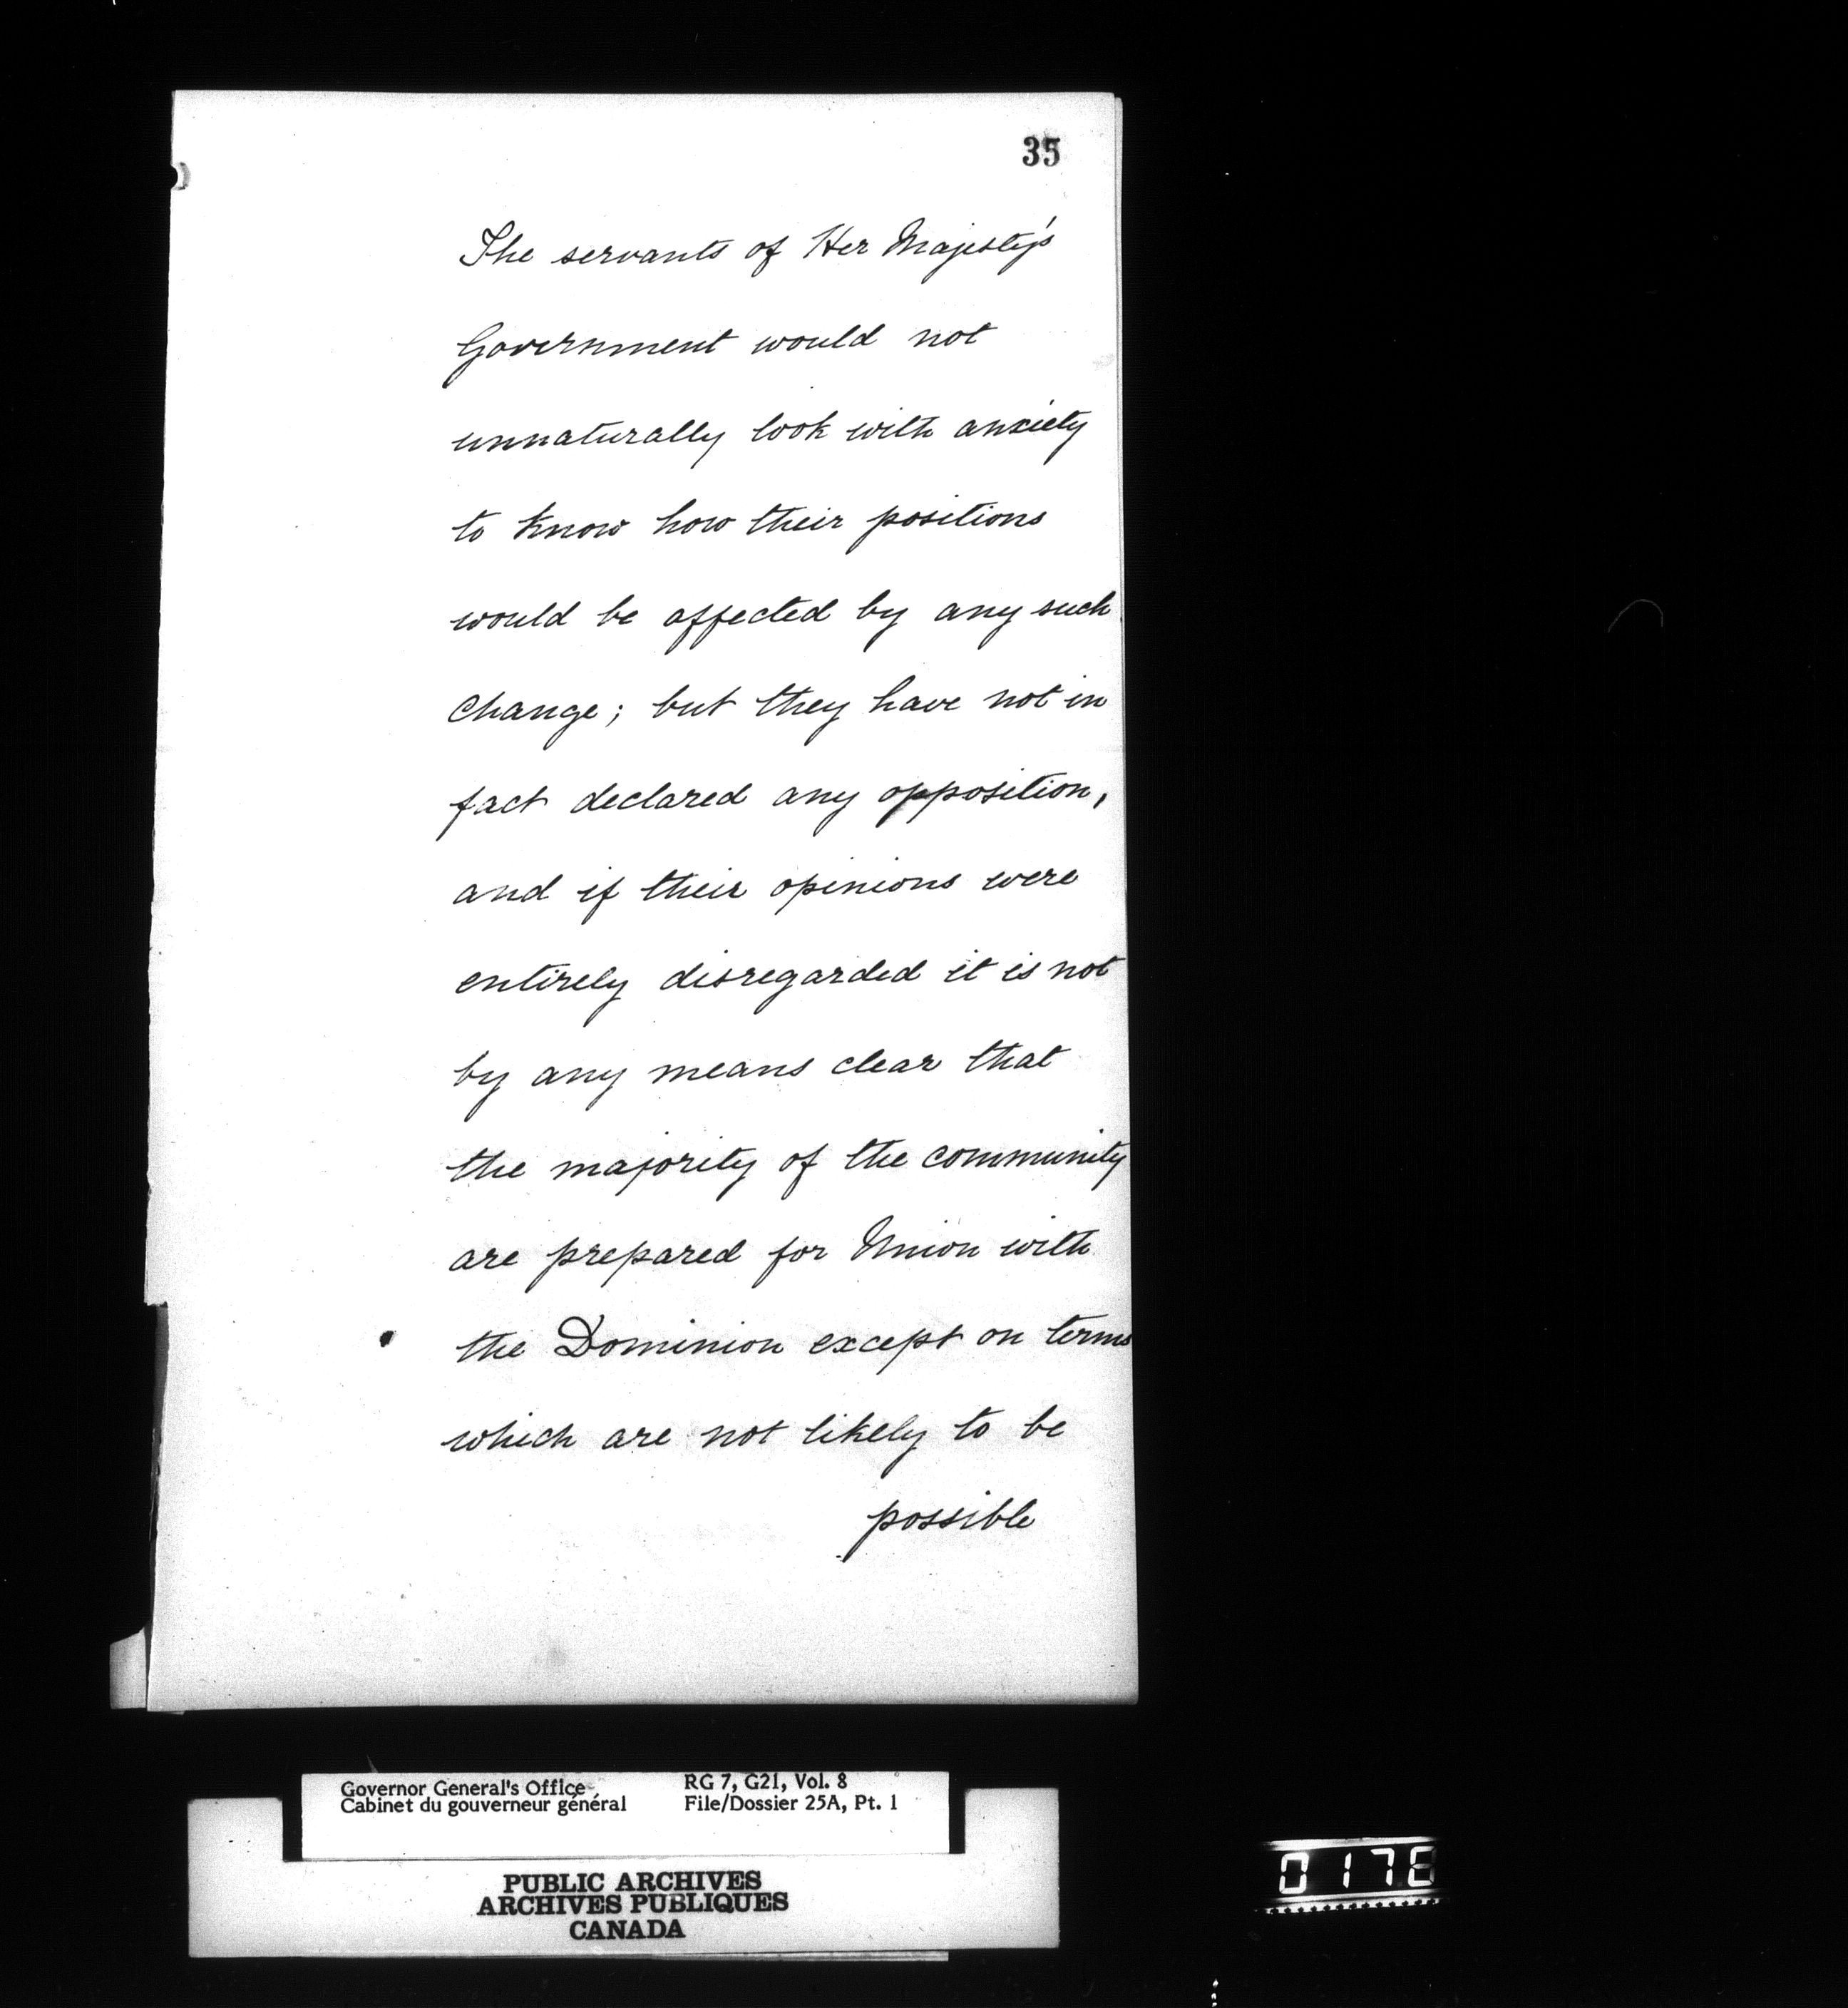 35
The servants of Her Majesty's
Government would not
unnaturally look with anxiety
to know how their positions
would be affected by any such
change; but they have not in
fact declared any opposition,
and if their opinions were
entirely disregarded it is not
by any means clear that
the majority of the community
are prepared for Union with
the Dominion except on terms
which are not likely to be
possible
Governor General's Office RG 7, G21, Vol. 8
Cabinet du gouverneur général File/Dossier 25A, Pt. 1
PUBLIC ARCHIVES
ARCHIVES PUBLIQUES
CANADA